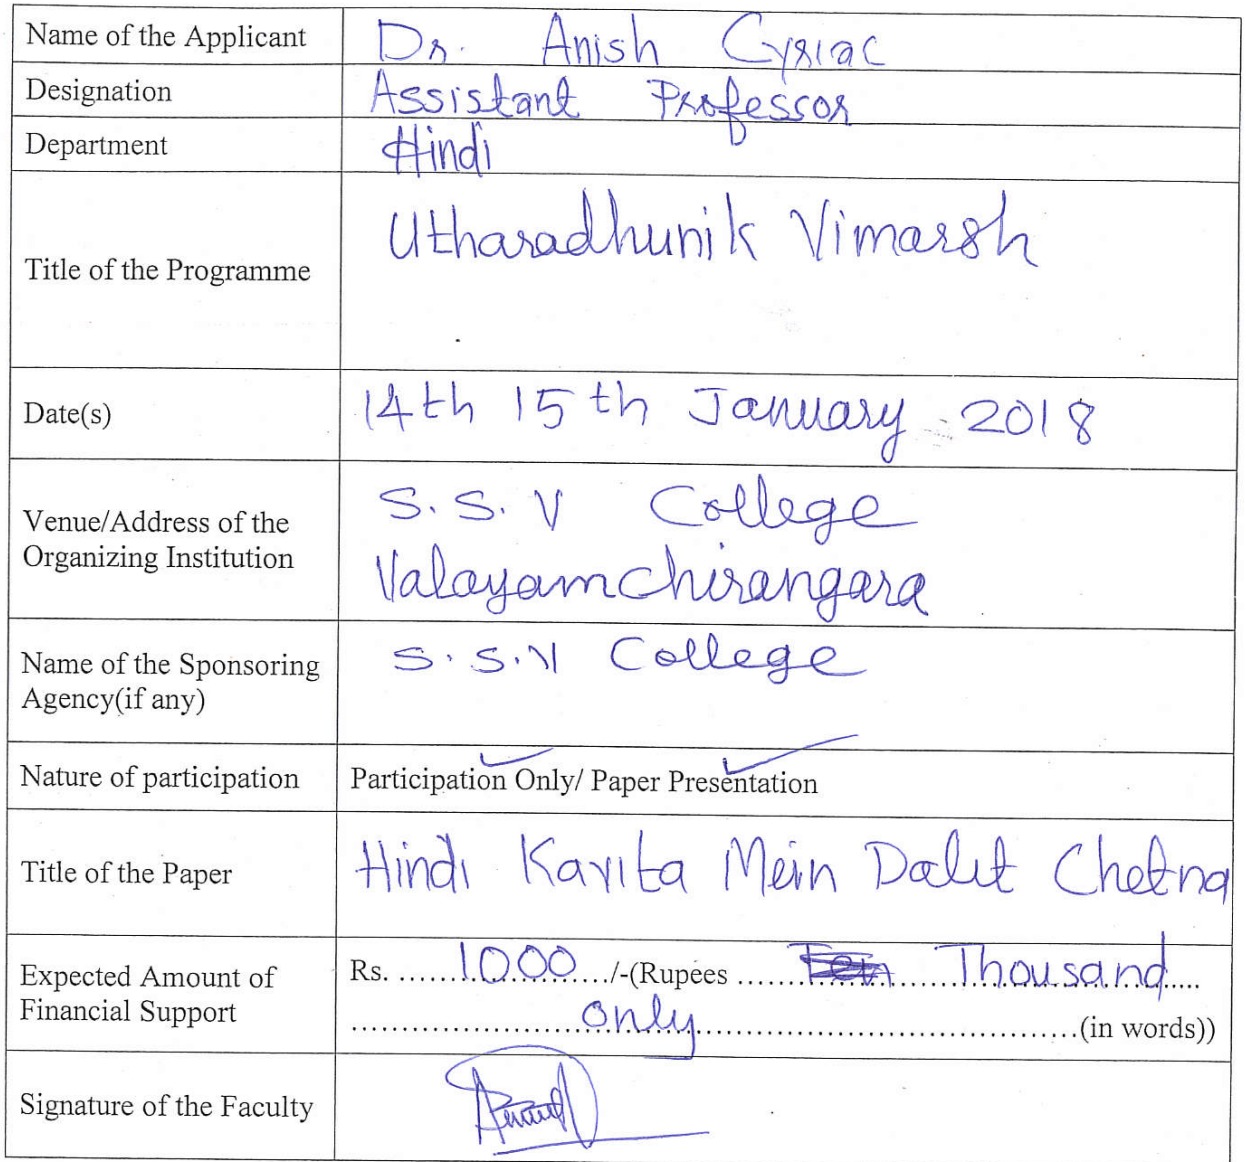 Name of the Applicant Dr. Anish Cyriac
Designation Assistant Professor
Department Hindi
Title of the Programme Utharadhunik Vimarsh
Date(s) 14th 15th January 2018
Venue/Address of the
Organizing Institution
S. S. V College
Valayamchirangara
Name of the Sponsoring
Agency(if any)
S. S. V College
Nature of participation Participation Only/ Paper Presentation
Title of the Paper Hindi Kavita Mein Dalit Chetna
Expected Amount of
Financial Support
Rs. ......1000....../-(Rupees ........ Thousand.....
........................only........................(in words))
Signature of the Faculty